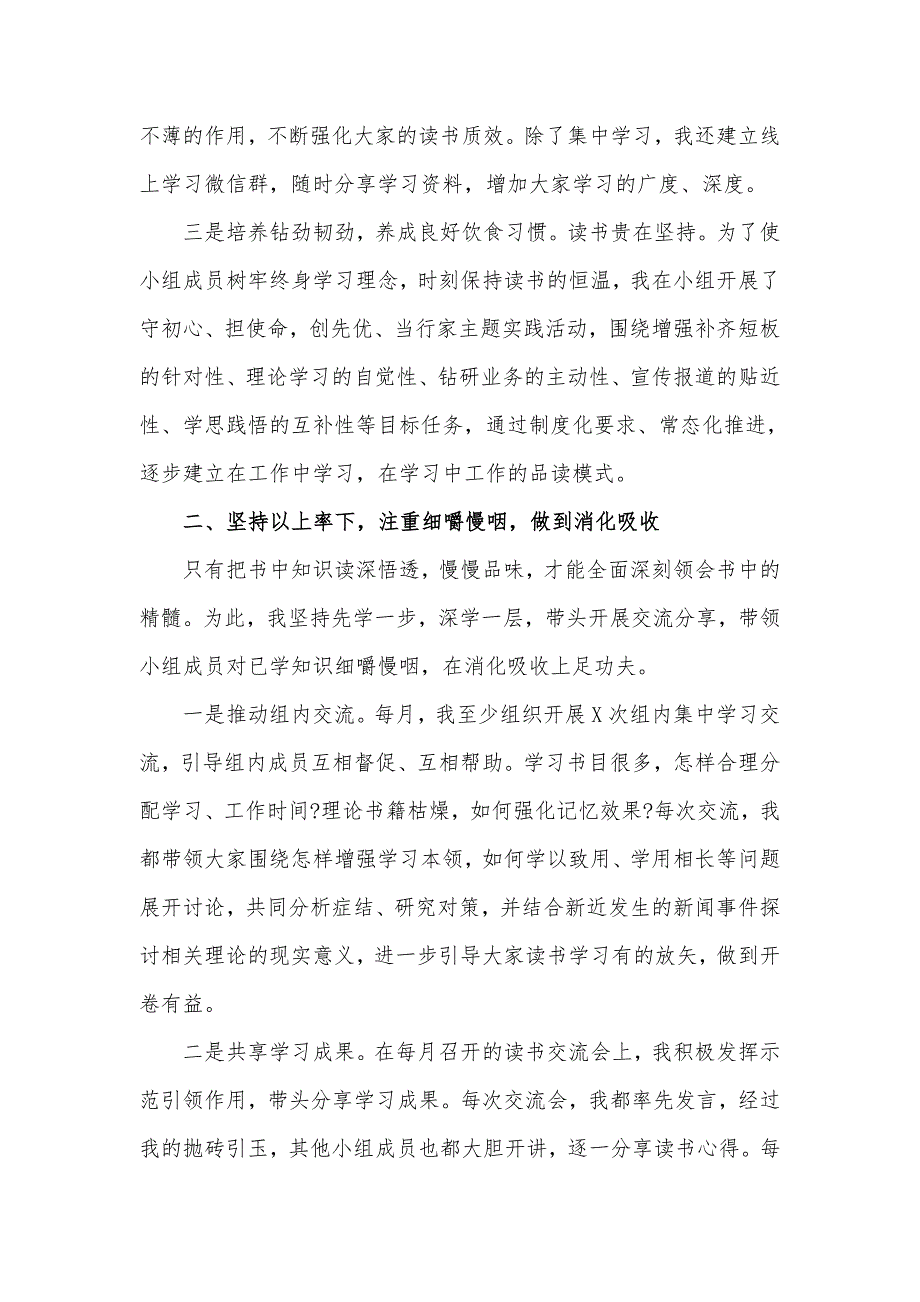 不薄的作用，不断强化大家的读书质效。除了集中学习，我还建立线
上学习微信群，随时分享学习资料，增加大家学习的广度、深度。
三是培养钻劲韧劲，养成良好饮食习惯。读书贵在坚持。为了使
小组成员树牢终身学习理念，时刻保持读书的恒温，我在小组开展了
守初心、担使命，创先优、当行家主题实践活动，围绕增强补齐短板
的针对性、理论学习的自觉性、钻研业务的主动性、宣传报道的贴近
性、学思践悟的互补性等目标任务，通过制度化要求、常态化推进，
逐步建立在工作中学习，在学习中工作的品读模式。
二、坚持以上率下，注重细嚼慢咽，做到消化吸收
只有把书中知识读深悟透，慢慢品味，才能全面深刻领会书中的
精髓。为此，我坚持先学一步，深学一层，带头开展交流分享，带领
小组成员对已学知识细嚼慢咽，在消化吸收上足功夫。
一是推动组内交流。每月，我至少组织开展X次组内集中学习交
流，引导组内成员互相督促、互相帮助。学习书目很多，怎样合理分
配学习、工作时间?理论书籍枯燥，如何强化记忆效果?每次交流，我
都带领大家围绕怎样增强学习本领，如何学以致用、学用相长等问题
展开讨论，共同分析症结、研究对策，并结合新近发生的新闻事件探
讨相关理论的现实意义，进一步引导大家读书学习有的放矢，做到开
卷有益。
二是共享学习成果。在每月召开的读书交流会上，我积极发挥示
范引领作用，带头分享学习成果。每次交流会，我都率先发言，经过
我的抛砖引玉，其他小组成员也都大胆开讲，逐一分享读书心得。每